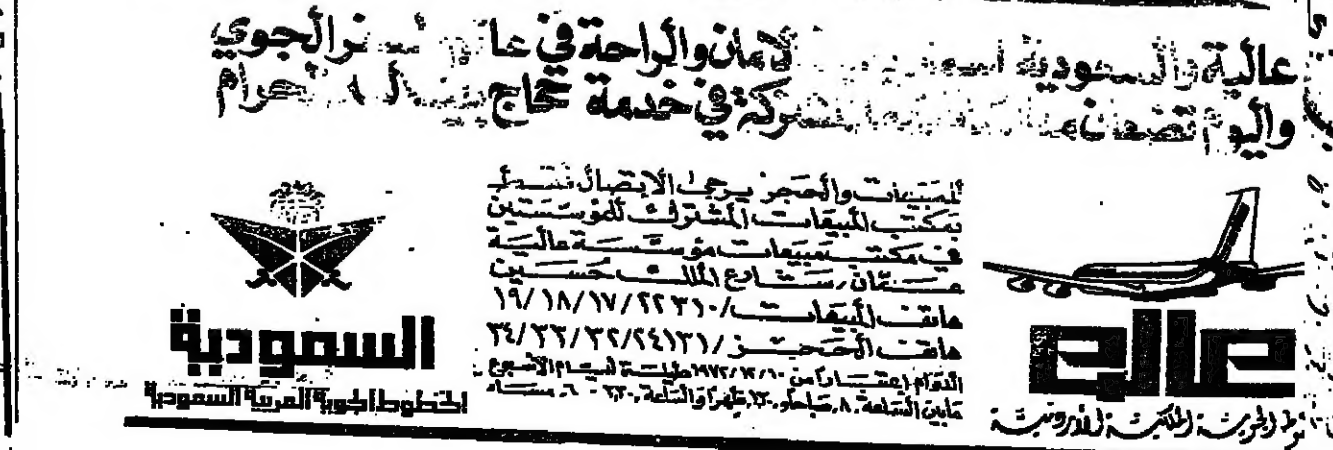 عالية والسعودية الأمان والراحة في الجوي
واليوم تضعان مشتركة في خدمة حجاج بيت الحرام
للمبيعات والحجز يرجى الإتصال
بمكتب المبيعات المشترك للمؤسستين
في مكتب مبيعات مؤسسة عالية
عمان، شارع الملك حسين
هاتف المبيعات/ ٢٢٣١٠/ ١٧/ ١٨/ ١٩
هاتف الحجز/ ٢٤١٣١/ ٣٢/ ٣٣/ ٣٤
الدوام إعتباراً من ١٠/ ١٢/ ١٩٧٢ طيلة أيام الأسبوع
مابين الساعة ٨ صباحاً ظهراً والساعة ٦ مساء
السعودية
الخطوط الجوية العربية السعودية
عاليه
الجوية الملكية الأردنية